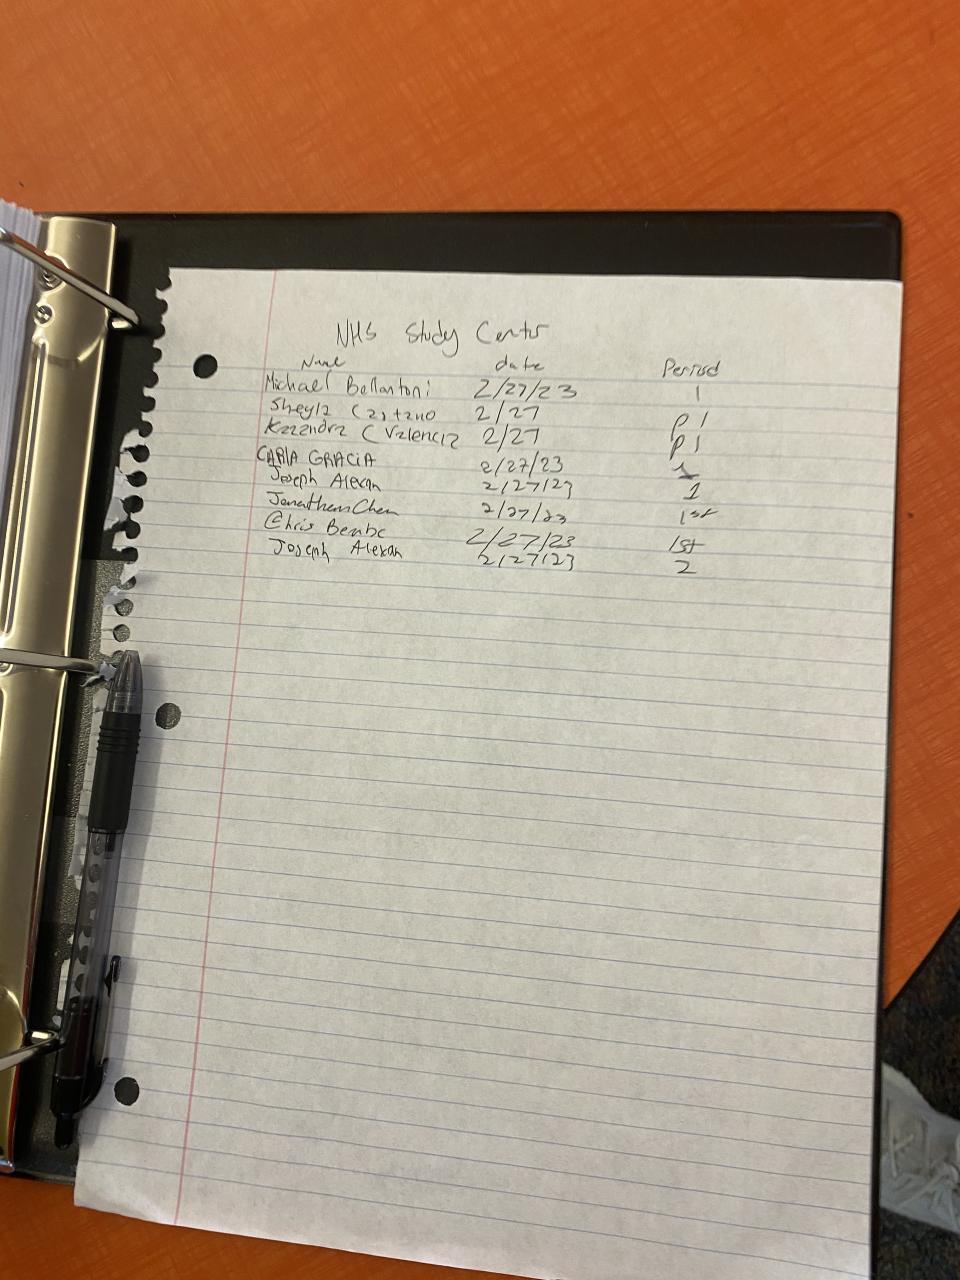 NHS Study Center
Name date Period
Michael Bellantoni 2/27/23 1
Sheyla Castano 2/27 p1
Kazandra C Valencia 2/27 p1
CARLA GRACIA 2/27/23 1
Joseph Alexan 2/27/23 1
Jonathan Chen 2/27/23 1st
Chris 2/27/23 1st
Joseph Alexan 2/27/23 2